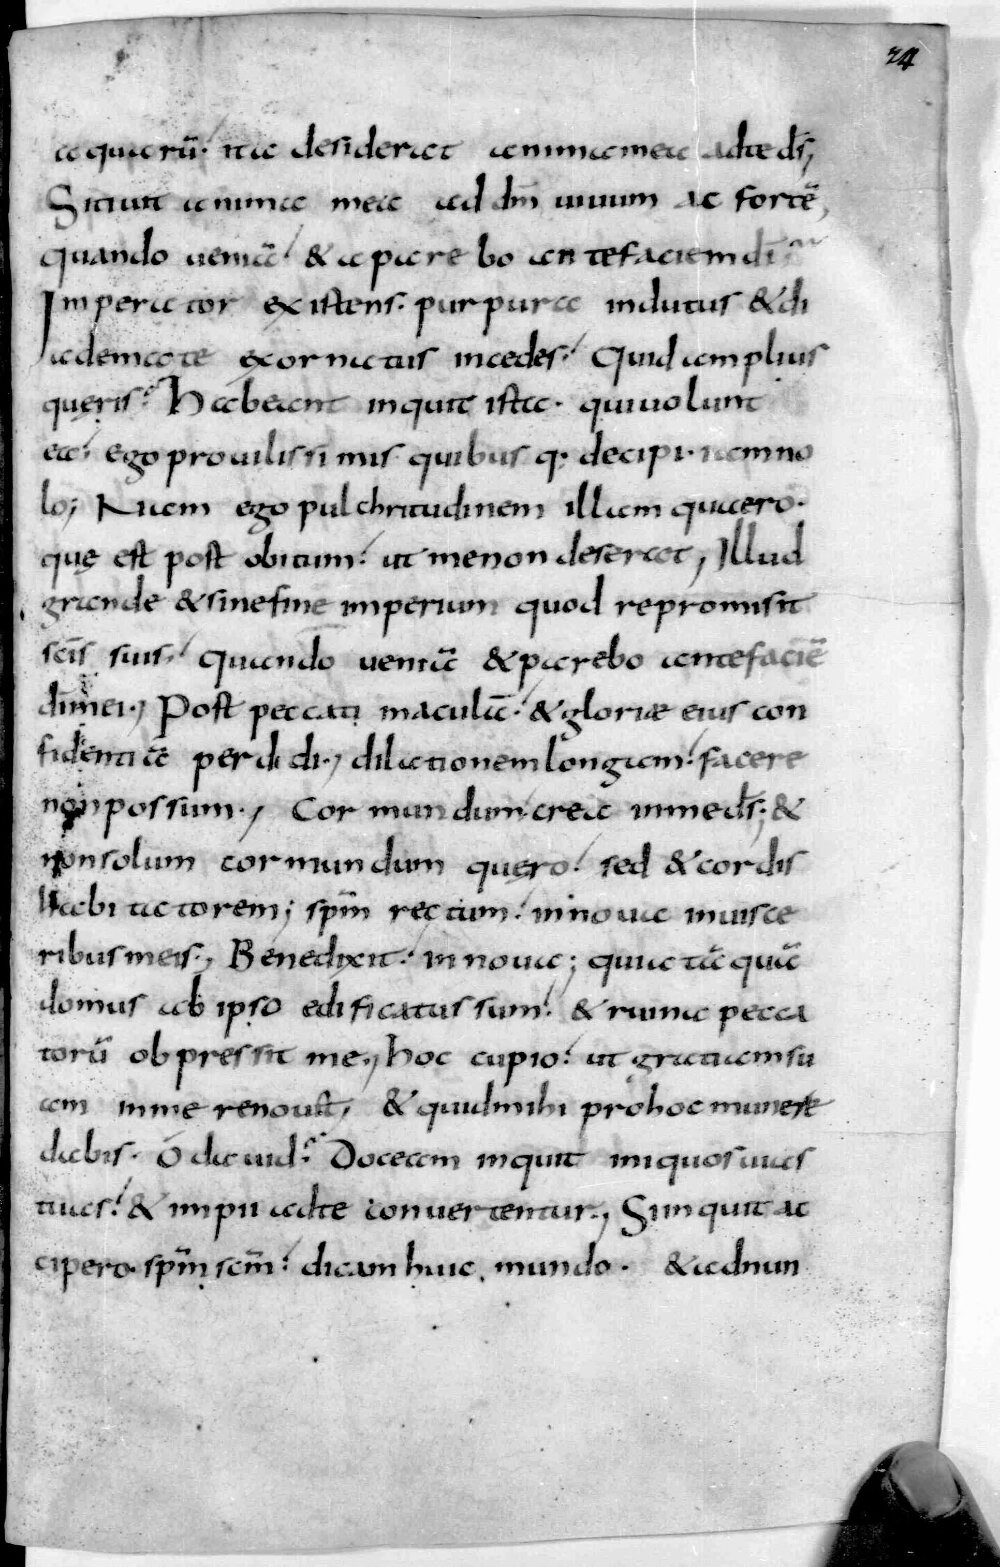 24
aquarū· ita desiderat animamea adte dš;
Sitiuit anima mea ad dm̄ uiuum ac fortē,
quando ueniā & apare bo an tefaciem dī
Imperator existens· purpura indutus & di
ademate exornatus incedes· Quid ampluis
queris· Habeant inquit ista· quiuolunt
ea· ego prouilissimis quibus q· decipi· iamno
lo; Nam ego pulchritudinem illam quaero·
quę est post obitum· ut menon deserat, Illud
grande & sinefine imperium quod repromisit
sc̄is suis· quando ueniā & parebo antefaciē
dīmei·, Post peccati maculā· & gloriæ eius con
fidentiā perdidi·, dilationemlongam· facere
nonpossum·, Cor mundum crea inmedš; &
nonsolum cormundum quęro· sed & cordis
habitatorem; spm̄ rectum· innoua inuisce
ribusmeis·, Benedixit· innoua; quiatāquā
domus ab ipso edificatus sum· & ruina pecca
torū obpressit me·, hoc cupio· ut gratiamsu
am inme renouet, & quidmihi prohocmunere
dabis· ó dauid· Doceam inquit iniquosuias
tuas· & impii adte conuertentur·, Siinquit ac
cipero· spm̄ scm̄· dicam huic mundo· & adnun